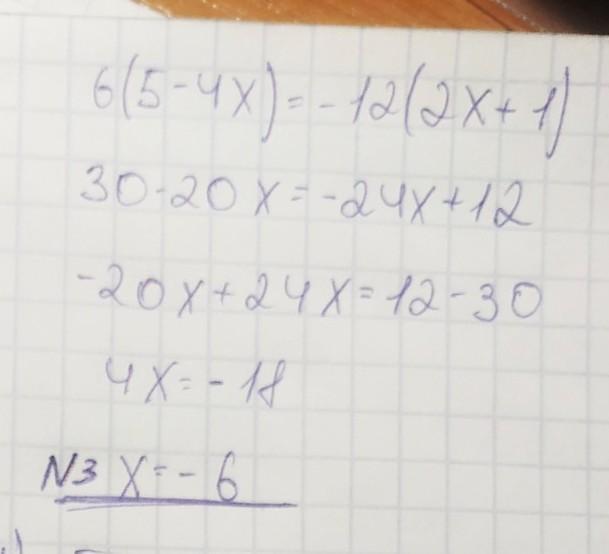 6(5-4x)=-12(2x+1)
30-20x=-24x+12
-20x+24x=12-30
4x=-18
N3 x=-6